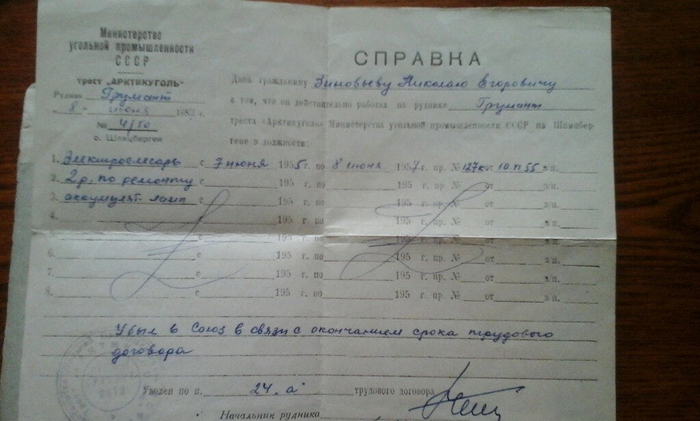 Министерство
угольной промышленности
СССР
трест „АРКТИКУГОЛЬ"
Рудник Грумант
8 июня 1957 г.
№ 4/50
о. Шпицберген
СПРАВКА
Дана гражданину Зиновьеву Николаю Егоровичу
в том, что он действительно работал на руднике Грумант
треста «Арктикуголь» Министерства угольной промышленности СССР на Шпицбер-
гене в должности:
1. Электрослесарь с 7 июня 1955 г. по 8 июня 1957 г. пр. № 127к от 10.VI 55 з/п.
2. 2р. по ремонту с 195 г. по 195 г. пр. № от з/п.
3. аккумулят. ламп с 195 г. по 195 г. пр. № от з/п.
4. с 195 г. по 195 г. пр. № от з/п.
с 195 г. по 195 г. пр. № от з/п.
6. с 195 г. по 195 г. пр. № от з/п.
7. с 195 г. по 195 г. пр. № от з/п.
8. с 195 г. по 195 г. пр. № от з/п.
Убыл в Союз в связи с окончанием срока трудового
договора
Уволен по п. 24 „а" трудового договора
Начальник рудника